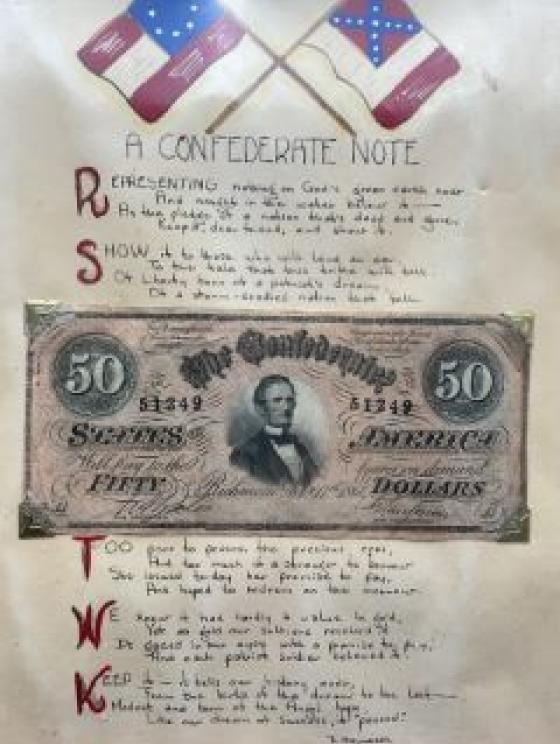 A CONFEDERATE NOTE
REPRESENTING nothing on God's green earth now
And naught in the water below it —
As the pledge of a nation that's dead and gone,
Keep it, dear friend, and show it.
SHOW it to those who will lend an ear
To the tale that this trifle will tell
Of Liberty born of a patriot's dream,
Of a storm-cradled nation that fell.
50
50
The Confederate
51249
51249
STATES
AMERICA
Will pay to the
on demand
FIFTY
Richmond
DOLLARS
TOO poor to possess the precious ores,
And too much of a stranger to borrow
She issued today her promise to pay,
And hoped to redeem on the morrow.
WE knew it had hardly a value in gold,
Yet as gold our soldiers received it
It gazed in our eyes with a promise to pay,
And each patriot soldier believed it.
KEEP it — it tells our history over,
From the birth of the dream to the last —
Modest and born of the Angel hope
Like our dream of success, it "passed"